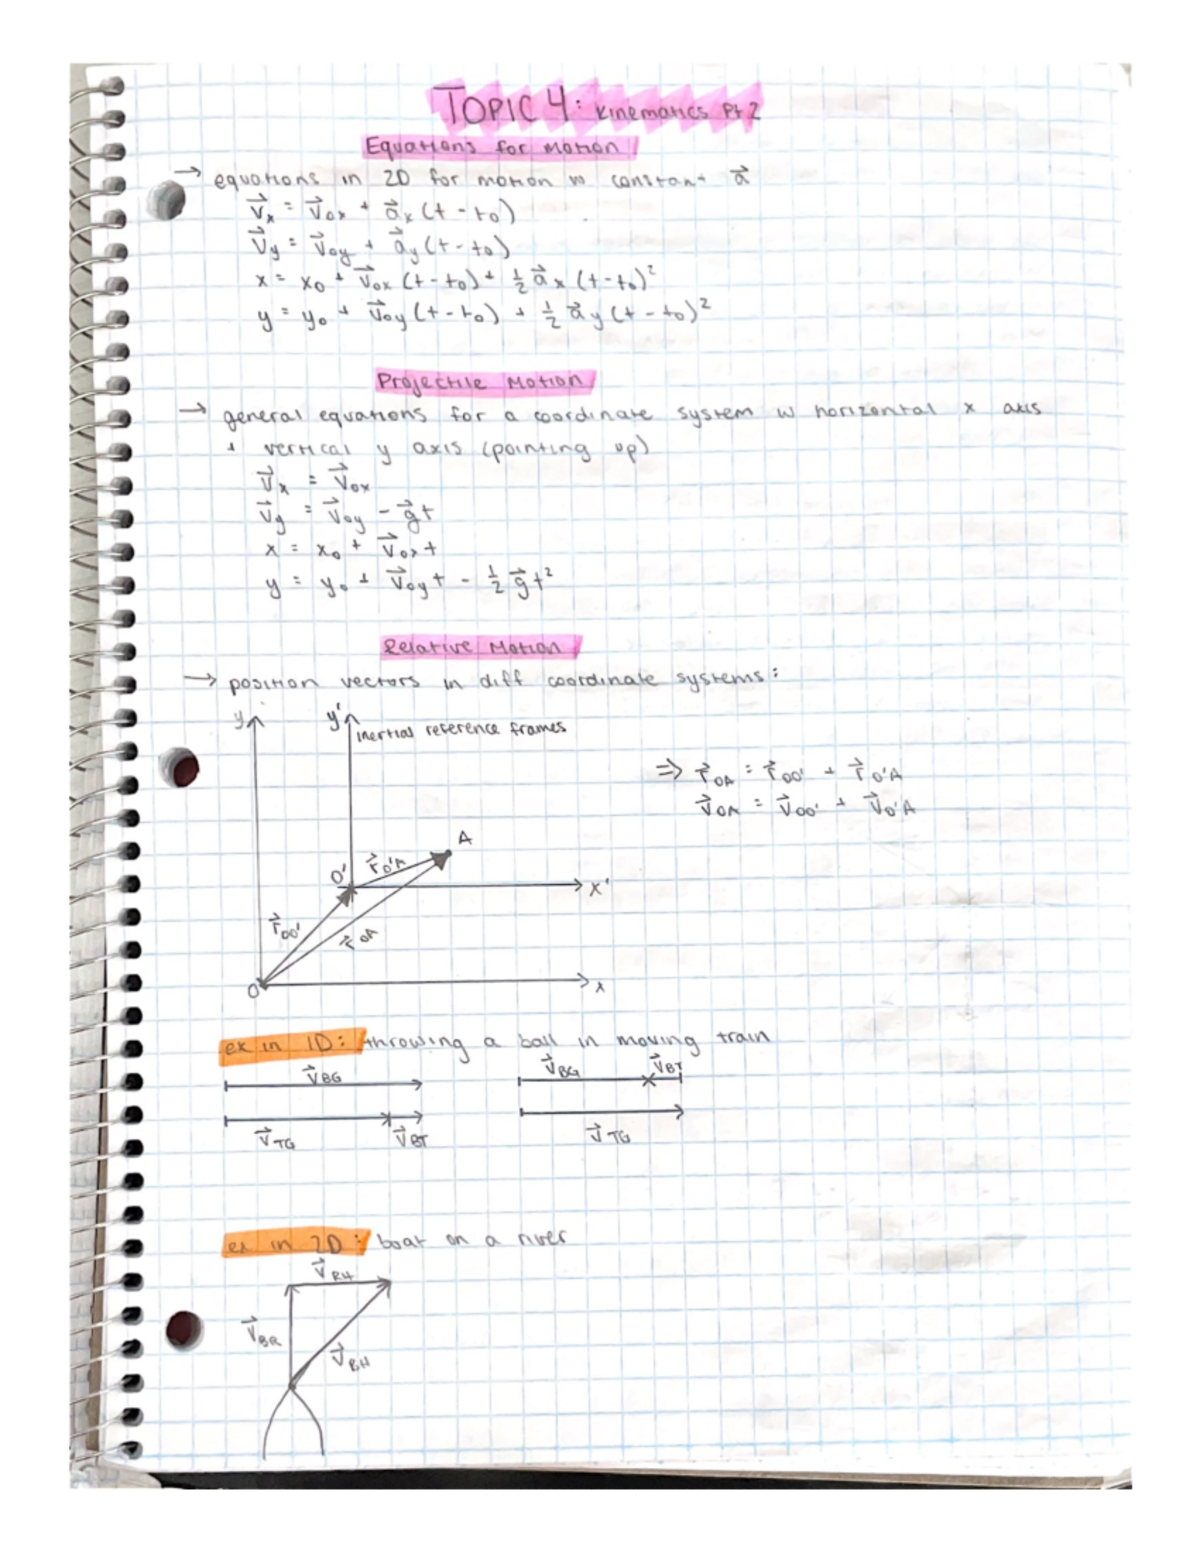 TOPIC 4: Kinematics Pt 2
Equations for Motion
→ equations in 2D for motion w constant a⃗
v⃗ₓ = v⃗₀ₓ + a⃗ₓ (t - t₀)
v⃗y = v⃗₀y + a⃗y (t - t₀)
x = x₀ + v⃗₀ₓ (t - t₀) + ½ a⃗ₓ (t - t₀)²
y = y₀ + v⃗₀y (t - t₀) + ½ a⃗y (t - t₀)²
Projectile Motion
→ general equations for a coordinate system w horizontal x axis
+ vertical y axis (pointing up)
v⃗ₓ = v⃗₀ₓ
v⃗y = v⃗₀y - g⃗t
x = x₀ + v⃗₀ₓt
y = y₀ + v⃗₀yt - ½ g⃗t²
Relative Motion
→ position vectors in diff coordinate systems:
y y' inertial reference frames
⇒ r⃗OA = r⃗OO' + r⃗O'A
v⃗OA = v⃗OO' + v⃗O'A
A
O' r⃗O'A
x'
r⃗OO' r⃗OA
O x
ex in 1D: throwing a ball in moving train
v⃗BG v⃗BG v⃗BT
v⃗TG v⃗BT v⃗TG
ex in 2D: boat on a river
v⃗RH
v⃗BR
v⃗BH